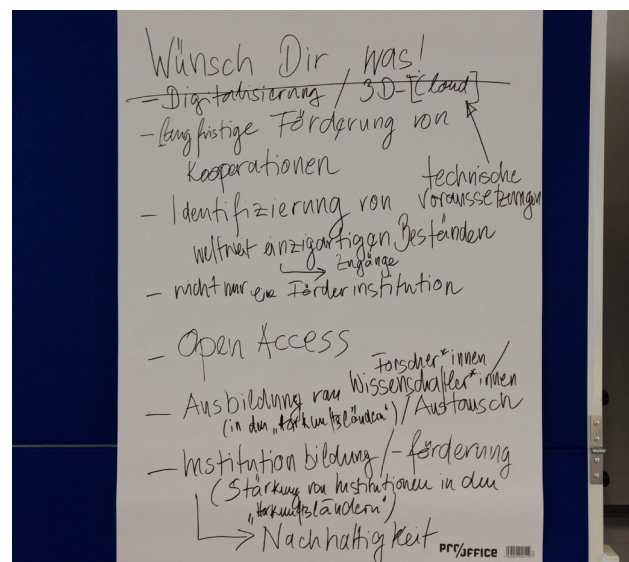 Wünsch Dir was!
- Digitalisierung / 3D-[Cloud]
- langfristige Förderung von
Kooperationen
technische
Voraussetzungen
- Identifizierung von
weltweit einzigartigen Beständen
Zugänge
- nicht nur eine Förderinstitution
- Open Access
Forscher*innen/
- Ausbildung von Wissenschaftler*innen
(in den „Herkunftsländern“) / Austausch
- Institution bildung/-förderung
(Stärkung von Institutionen in den
„Herkunftsländern“)
Nachhaltigkeit
PRO/OFFICE